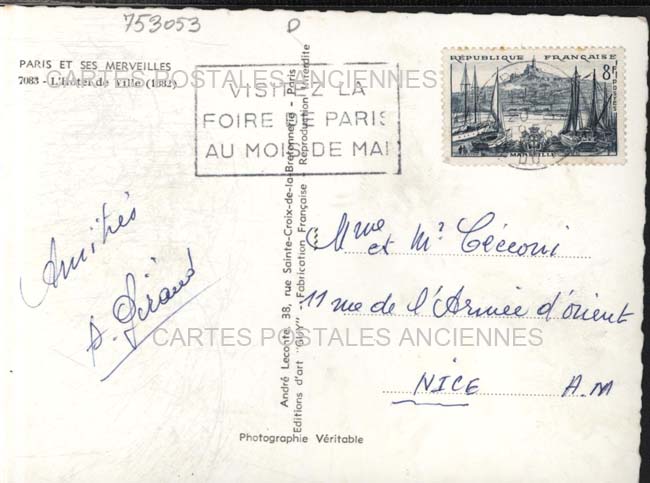 753053
D
PARIS ET SES MERVEILLES
7083 - L'Hotel de Ville (1882)
CARTES POSTALES ANCIENNES
VISITEZ LA
FOIRE DE PARIS
AU MOIS DE MAI
RÉPUBLIQUE FRANÇAISE
8F
POSTES
MARSEILLE
Amitiés
A. Giraud
André Leconte, 38, rue Sainte-Croix-de-la-Bretonnerie - Paris
Editions d'art "GUY" - Fabrication Française - Reproduction Interdite
Mme et Mr Cecconi
11 rue de l'Armée d'orient
CARTES POSTALES ANCIENNES
NICE A.M
Photographie Véritable